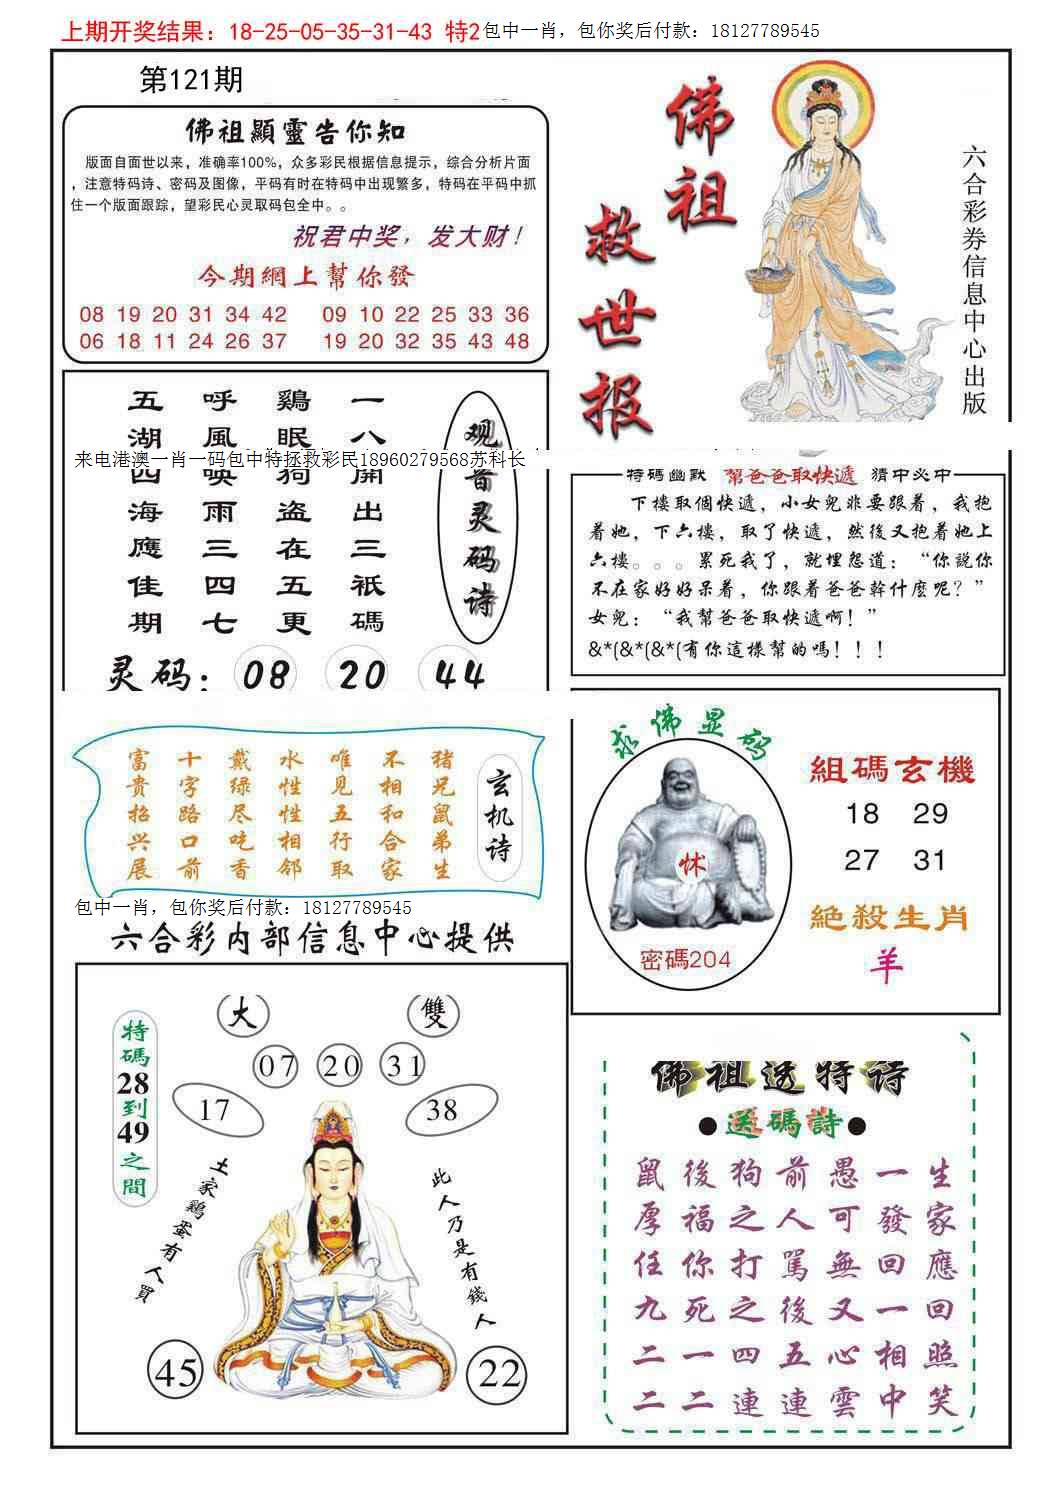 上期开奖结果：18-25-05-35-31-43 特2包中一肖，包你奖后付款：18127789545
第121期
佛祖顯靈告你知
版面自面世以来，准确率100%，众多彩民根据信息提示，综合分析片面
，注意特码诗、密码及图像，平码有时在特码中出现繁多，特码在平码中抓
住一个版面跟踪，望彩民心灵取码包全中。。
祝君中奖，发大财！
今期網上幫你發
08 19 20 31 34 42 09 10 22 25 33 36
06 18 11 24 26 37 19 20 32 35 43 48
佛祖
救世报
六合彩券信息中心出版
观音灵码诗
一八開出三祇碼
鷄眠狗盗在五更
呼風唤雨三四七
五湖四海應佳期
来电港澳一肖一码包中特拯救彩民18960279568苏科长
灵码：08 20 44
特碼幽默 幫爸爸取快遞 猜中必中
下樓取個快遞，小女兒非要跟着，我抱
着她，下六樓，取了快遞，然後又抱着她上
六樓。。。累死我了，就埋怨道：“你説你
不在家好好呆着，你跟着爸爸幹什麼呢？”
女兒：“我幫爸爸取快遞啊！”
&*(&*(&*(有你這樣幫的嗎！！！
玄机诗
猪兄鼠弟生
不相和合家
唯见五行取
水性性相邻
戴绿尽吃香
十字路口前
富贵招兴展
包中一肖，包你奖后付款：18127789545
六合彩内部信息中心提供
求佛显码
密碼204
組碼玄機
18 29
27 31
絕殺生肖
羊
特碼28到49之間
大 雙
07 20 31
17 38
土家鷄蛋有人買
此人乃是有錢人
45 22
佛祖透特诗
●送碼詩●
鼠後狗前愚一生
厚福之人可發家
任你打駡無回應
九死之後又一回
二一四五心相照
二二連連雲中笑